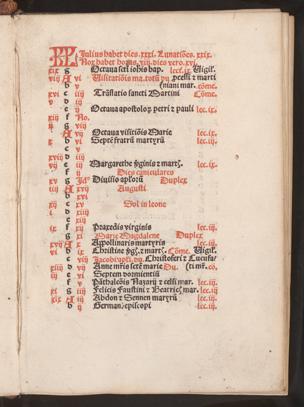 KL Julius habet dies. xxxi. Lunatiões. xxix.
Nox habet horas. viij. dies vero. xvj
xix g Octaua scti iohīs bap. lect. ix. Vigil.
viij A vj Uisitatiōis ma. totū p̄. pcessi &
b v niani mar. cōme.
xvj c iiij Trāslatio sancti Martini Cōme.
v d iij
e ij Octaua apostoloꝝ petri & pauli lec. ix.
xiij f No.
ij g viij
A vij Octaua visitiōis Marie lec. ix.
x b vj Septē fratrū martyrū lec. iij
c v
xviij d iiij
vij e iij Margarethe v̄ginis & martꝭ. lec. ix.
f ij Dies caniculares
xv g Jd⁹ Diuisio aplōrū Duplex
iiij A Augusti
b
xij c Sol in leone
i d
e
ix f xij Praxedis virginis lec. iij
g xj Marie Magdalene Duplex
xvij A x Appollinaris martyris lec. iij
vj b ix Christine v̄g. & martꝭ. Cōme. Vigil.
c viij Jacobi apli. Christoferi & Cucufa
xiiij d vij Anne mr̄is scte marie Du. (ti mr̄. co.
iij e vj Septem dormientiū lec. iij
f v Pāthaleōis Nazarij & celsi mar. lec. iij
xi g iiij Felicis Faustini & Beatricꝭ mar. lec. iij
xix A iij Abdon & Sennen martyrū lec. iij
b ij Germani episcopi lec. iij